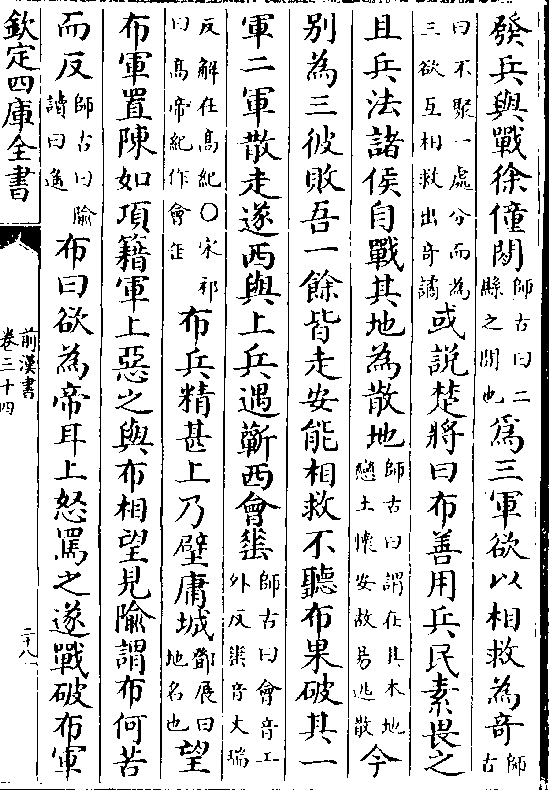 發兵與戰徐僮間師古曰二縣之間也為三軍欲以相救為奇師古
曰不聚一處分而為三欲互相救出奇譎或說楚將曰布善用兵民素畏之
且兵法諸侯自戰其地為散地師古曰謂在其本地戀土懷安故易逃散今
别為三彼敗吾一餘皆走安能相救不聽布果破其一
軍二軍散走遂西與上兵遇蘄西會㽥師古曰會音工外反㽥音丈瑞
反解在高紀○宋祁曰高帝紀作會缶布兵精甚上乃壁庸城鄧展曰地名也望
布軍置陳如項籍軍上惡之與布相望見隃謂布何苦
而反師古曰隃讀曰遙布曰欲為帝耳上怒罵之遂戰破布軍
欽定四庫全書
前漢書
卷三十四
二十八